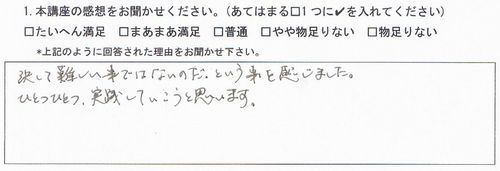 1. 本講座の感想をお聞かせください。(あてはまる□1つに✔を入れてください)
□たいへん満足 □まあまあ満足 □普通 □やや物足りない □物足りない
*上記のように回答された理由をお聞かせ下さい。
決して難しい事ではないのだ、という事を感じました。
ひとつひとつ、実践していこうと思います。